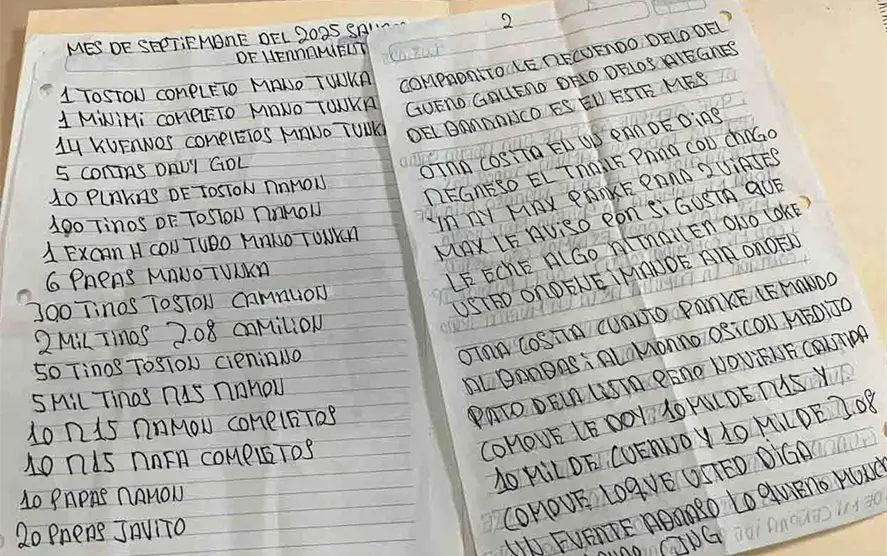 MES DE SEPTIEMBRE DEL 2025 SALIDA
DE HERRAMIENT
1 TOSTON COMPLETO MANO TUNKA
1 MINIMI COMPLETO MANO TUNKA
14 KUERNOS COMPLETOS MANO TUNKA
5 CONTAS DAVY GOL
10 PLAKAS DE TOSTON RAMON
100 TIROS DE TOSTON RAMON
1 EXCAN H CON TUDO MANO TUNKA
6 PAPAS MANO TUNKA
300 TIROS TOSTON CAMALION
2 MIL TIROS 7.08 CAMILION
50 TIROS TOSTON CIPRIANO
5 MIL TIROS R15 RAMON
10 R15 RAMON COMPLETOS
10 R15 RAFA COMPLETOS
10 PAPAS RAMON
20 PAPAS JAVITO
2
COMPADRITO LE RECUERDO DELO DEL
GUERO GALLERO DELO DELOS ALEGRES
DEL BARRANCO ES EN ESTE MES
OTRA COSITA EN US PAR DE DIAS
REGRESO EL TRAILE PARA COD CHAGO
YA AY MAX PARKE PARA 2 VIAJES
MAX LE AVISO POR SI GUSTA QUE
LE ECHE ALGO AL TRAILE N OXO LOKE
USTED ORDENE I MANDE A LA ORDEN
OTRA COSITA CUANTO PARKE LE MANDO
AL BARBAS I AL MORRO OSICON ME DIJO
PATO DELA LISTA PERO NO VIENE CANTIDA
COMOVE LE DOY 10 MIL DE R15 Y
10 MIL DE CUERNO Y 10 MIL DE 7.08
COMOVE LOQVE USTED DIGA
UN FUERTE ABRASO LO QUIERO MUCH
CJNG